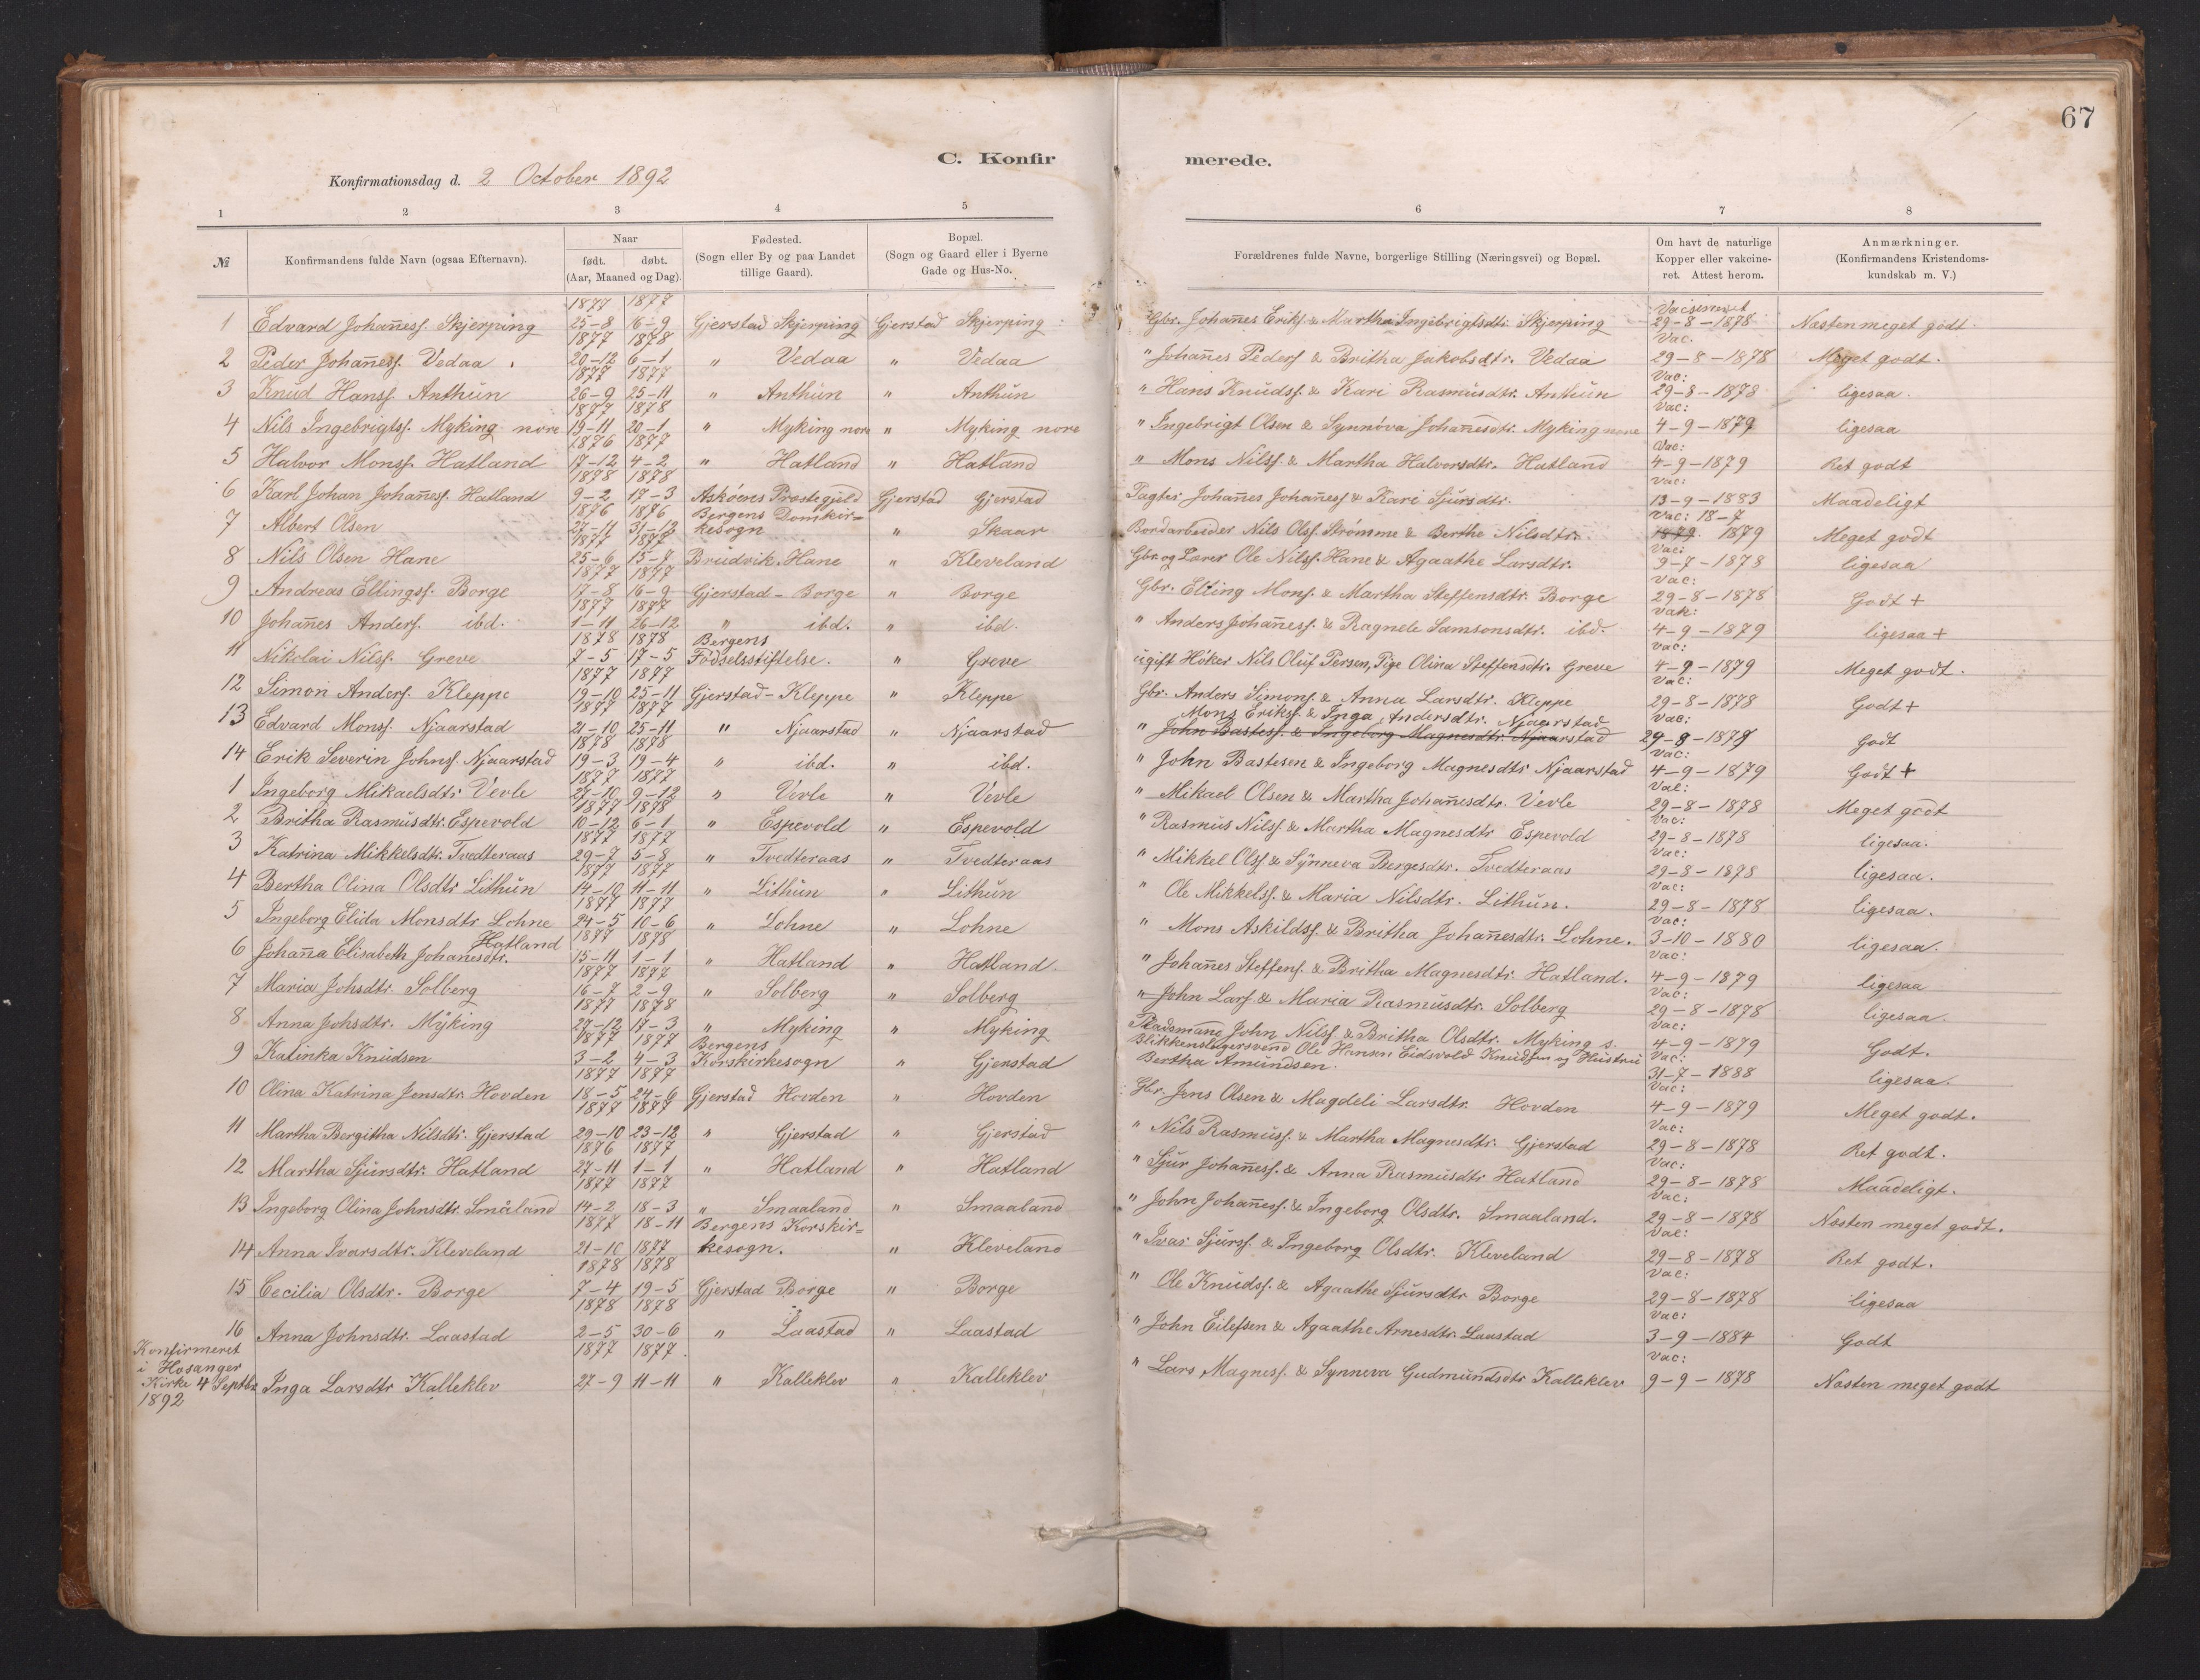 67
C. Konfirmerede.
Konfirmationsdag d. 2 October 1892
1 2 3 4 5 6 7 8
№ Konfirmandens fulde Navn (ogsaa Efternavn). Naar født. døbt. (Aar, Maaned og Dag). Fødested. (Sogn eller By og paa Landet tillige Gaard). Bopæl. (Sogn og Gaard eller i Byerne Gade og Hus-No. Forældrenes fulde Navne, borgerlige Stilling (Næringsvei) og Bopæl. Om havt de naturlige Kopper eller vakcineret. Attest herom. Anmærkninger. (Konfirmandens Kristendomskundskab m. V.)
1 Edvard Johañesf. Skjerping 1877 25-8 1877 16-9 Gjerstad Skjerping Gjerstad Skjerping Gbr. Johañes Eriksf & Martha Ingebrigtsdtr. Skjerping 29-8-1878 Næsten meget godt.
2 Peder Johañesf. Vedaa 1877 20-12 1878 6-1 " Vedaa " Vedaa " Johañes Pedersf & Britha Jakobsdtr. Vedaa Vac. 29-8-1878 Meget godt.
3 Knud Hansf. Anthun 1877 26-9 1877 25-11 " Anthun " Anthun " Hans Knudsf. & Kari Rasmusdtr. Anthun Vac: 29-8-1878 ligesaa.
4 Nils Ingebrigtsf. Myking nore 1877 19-11 1878 20-1 " Myking nore " Myking nore " Ingebrigt Olsen & Synnöva Johañesdtr. Myking nore Vac: 4-9-1879 ligesaa
5 Halvor Monsf. Hatland 1876 17-12 1877 4-2 " Hatland " Hatland " Mons Nilsf. & Martha Halvorsdtr. Hatland Vac: 4-9-1879 Ret godt
6 Karl Johan Johañesf. Hatland 1878 9-2 1878 17-3 Askøens Præstegjeld Gjerstad Gjerstad Johañes Johañesf & Kari Sjursdtr. Vac: 13-9-1883 Maadeligt
7 Albert Olsen 1876 27-11 1876 31-12 Bergens Domkirkesogn " Skaar Bordarbeider Nils Olsf. Strømme & Berthe Nilsdtr. Vac: 18-7 1879 Meget godt
8 Nils Olsen Hane 1877 25-6 1877 15-7 Brudvik Hane " Kleveland Gbr. og Lærer Ole Nilsf. Hane & Agaathe Larsdtr. Vac: 9-7-1878 ligesaa
9 Andreas Ellingsf. Borge 1877 17-8 1877 16-9 Gjerstad - Borge " Borge Gbr. Elling Monsf. & Martha Steffensdtr. Borge Vac: 29-8-1878 Godt +
10 Johañes Andersf. ibd. 1877 1-11 1877 26-12 " ibd. " ibd. " Anders Johañesf. & Ragnele Samsonsdtr. ibd. Vak: 4-9-1879 ligesaa +
11 Nikolai Nilsf. Greve 1878 7-5 1878 17-5 Bergens Födselsstiftelse. " Greve ugift Höker Nils Oluf Persen, Pige Olina Steffensdtr. Greve Vac: 4-9-1879 Meget godt.
12 Simon Andersf. Kleppe 1877 19-10 1877 25-11 Gjerstad - Kleppe " Kleppe Gbr. Anders Simonsf. & Anna Larsdtr. Kleppe Vac: 29-8-1878 Godt +
13 Edvard Monsf. Njaarstad 1877 21-10 1877 25-11 " Njaarstad " Njaarstad Mons Eriksf. & Inga Andersdtr. Njaarstad
" John Bastesf. & Ingeborg Magnesdtr. Njaarstad Vac: 29-8-1878 Godt
14 Erik Severin Johnsf. Njaarstad 1878 19-3 1878 19-4 " ibd. " ibd. " John Bastesen & Ingeborg Magnesdtr Njaarstad Vac: 4-9-1879 Godt +
1 Ingeborg Mikaelsdtr. Vevle 1877 27-10 1877 9-12 " Vevle " Vevle " Mikael Olsen & Martha Johañesdtr. Vevle Vac: 29-8-1878 Meget godt
2 Britha Rasmusdtr. Espevold 1877 10-12 1878 6-1 " Espevold " Espevold " Rasmus Nilsf & Martha Magnesdtr Espevold Vac: 29-8-1878 ligesaa.
3 Katrina Mikkelsdtr. Tvedteraas 1877 29-7 1877 5-8 " Tvedteraas " Tvedteraas " Mikkel Olsf. & Synneva Bergesdtr. Tvedteraas Vac: 29-8-1878 ligesaa.
4 Bertha Olina Olsdtr Lithun 1877 14-10 1877 11-11 " Lithun " Lithun " Ole Mikkelsf. & Maria Nilsdtr. Lithun. Vac: 29-8-1878 ligesaa.
5 Ingeborg Elida Monsdtr Lohne 1877 24-5 1877 10-6 " Lohne " Lohne " Mons Askildsf. & Britha Johañesdtr. Lohne. Vac: 3-10-1880 ligesaa.
6 Johaña Elisabeth Johañesdtr. Hatland 1877 15-11 1878 1-1 " Hatland " Hatland. " Johañes Steffensf. & Britha Magnesdtr. Hatland. Vac: 4-9-1879 ligesaa
7 Maria Johsdtr. Solberg 1877 16-7 1877 2-9 " Solberg " Solberg " John Larsf & Maria Rasmusdtr. Solberg Vac: 29-8-1878 ligesaa.
8 Anna Johsdtr. Myking 1877 27-12 1878 17-3 " Myking " Myking Pladsmand John Nilsf. & Britha Olsdtr. Myking s. Vac: 4-9-1879 Godt.
9 Katinka Knudsen 1877 3-2 1877 4-3 Bergens Korskirkesogn " Gjerstad Blikkenslagersvend Ole Hansen Eidsvold Knudsen og Hustru Bertha Amundsen. Vac: 31-7-1888 ligesaa.
10 Olina Katrina Jensdtr. Hovden 1877 18-5 1877 24-6 Gjerstad Hovden " Hovden Gbr. Jens Olsen & Magdeli Larsdtr. Hovden Vac: 4-9-1879 Meget godt.
11 Martha Bergitha Nilsdtr. Gjerstad 1877 29-10 1877 23-12 " Gjerstad " Gjerstad " Nils Rasmusf. & Martha Magnesdtr. Gjerstad Vac: 29-8-1878 Ret godt.
12 Martha Sjursdtr. Hatland 1876 27-11 1877 1-1 " Hatland " Hatland " Sjur Johañesf. & Anna Rasmusdtr Hatland Vac: 29-8-1878 Maadeligt.
13 Ingeborg Olina Johnsdtr. Småland 1877 14-2 1877 18-3 " Smaaland " Smaaland " John Johañesf. & Ingeborg Olsdtr. Smaaland. Vac: 29-8-1878 Næsten meget godt.
14 Anna Ivarsdtr. Kleveland 1877 21-10 18-11 1877 Bergens Korskirkesogn. " Kleveland " Ivar Sjursf. & Ingeborg Olsdtr. Kleveland Vac: 29-8-1878 Ret godt.
15 Cecilia Olsdtr. Borge 1878 7-4 1878 19-5 Gjerstad Borge " Borge " Ole Knudsf. & Agaathe Sjursdtr Borge Vac: 29-8-1878 ligesaa
16 Anna Johnsdtr. Laastad 1878 2-5 1878 30-6 " Laastad " Laastad " John Eilefsen & Agaathe Arnesdtr. Laastad Vac: 3-9-1884 Godt
Konfirmeret i Hosanger Kirke 4 Septbr 1892 Inga Larsdtr Kalleklev 1877 27-9 1877 11-11 " Kalleklev " Kalleklev " Lars Magnesf. & Synneva Gudmundsdtr Kalleklev Vac: 9-9-1878 Næsten meget godt